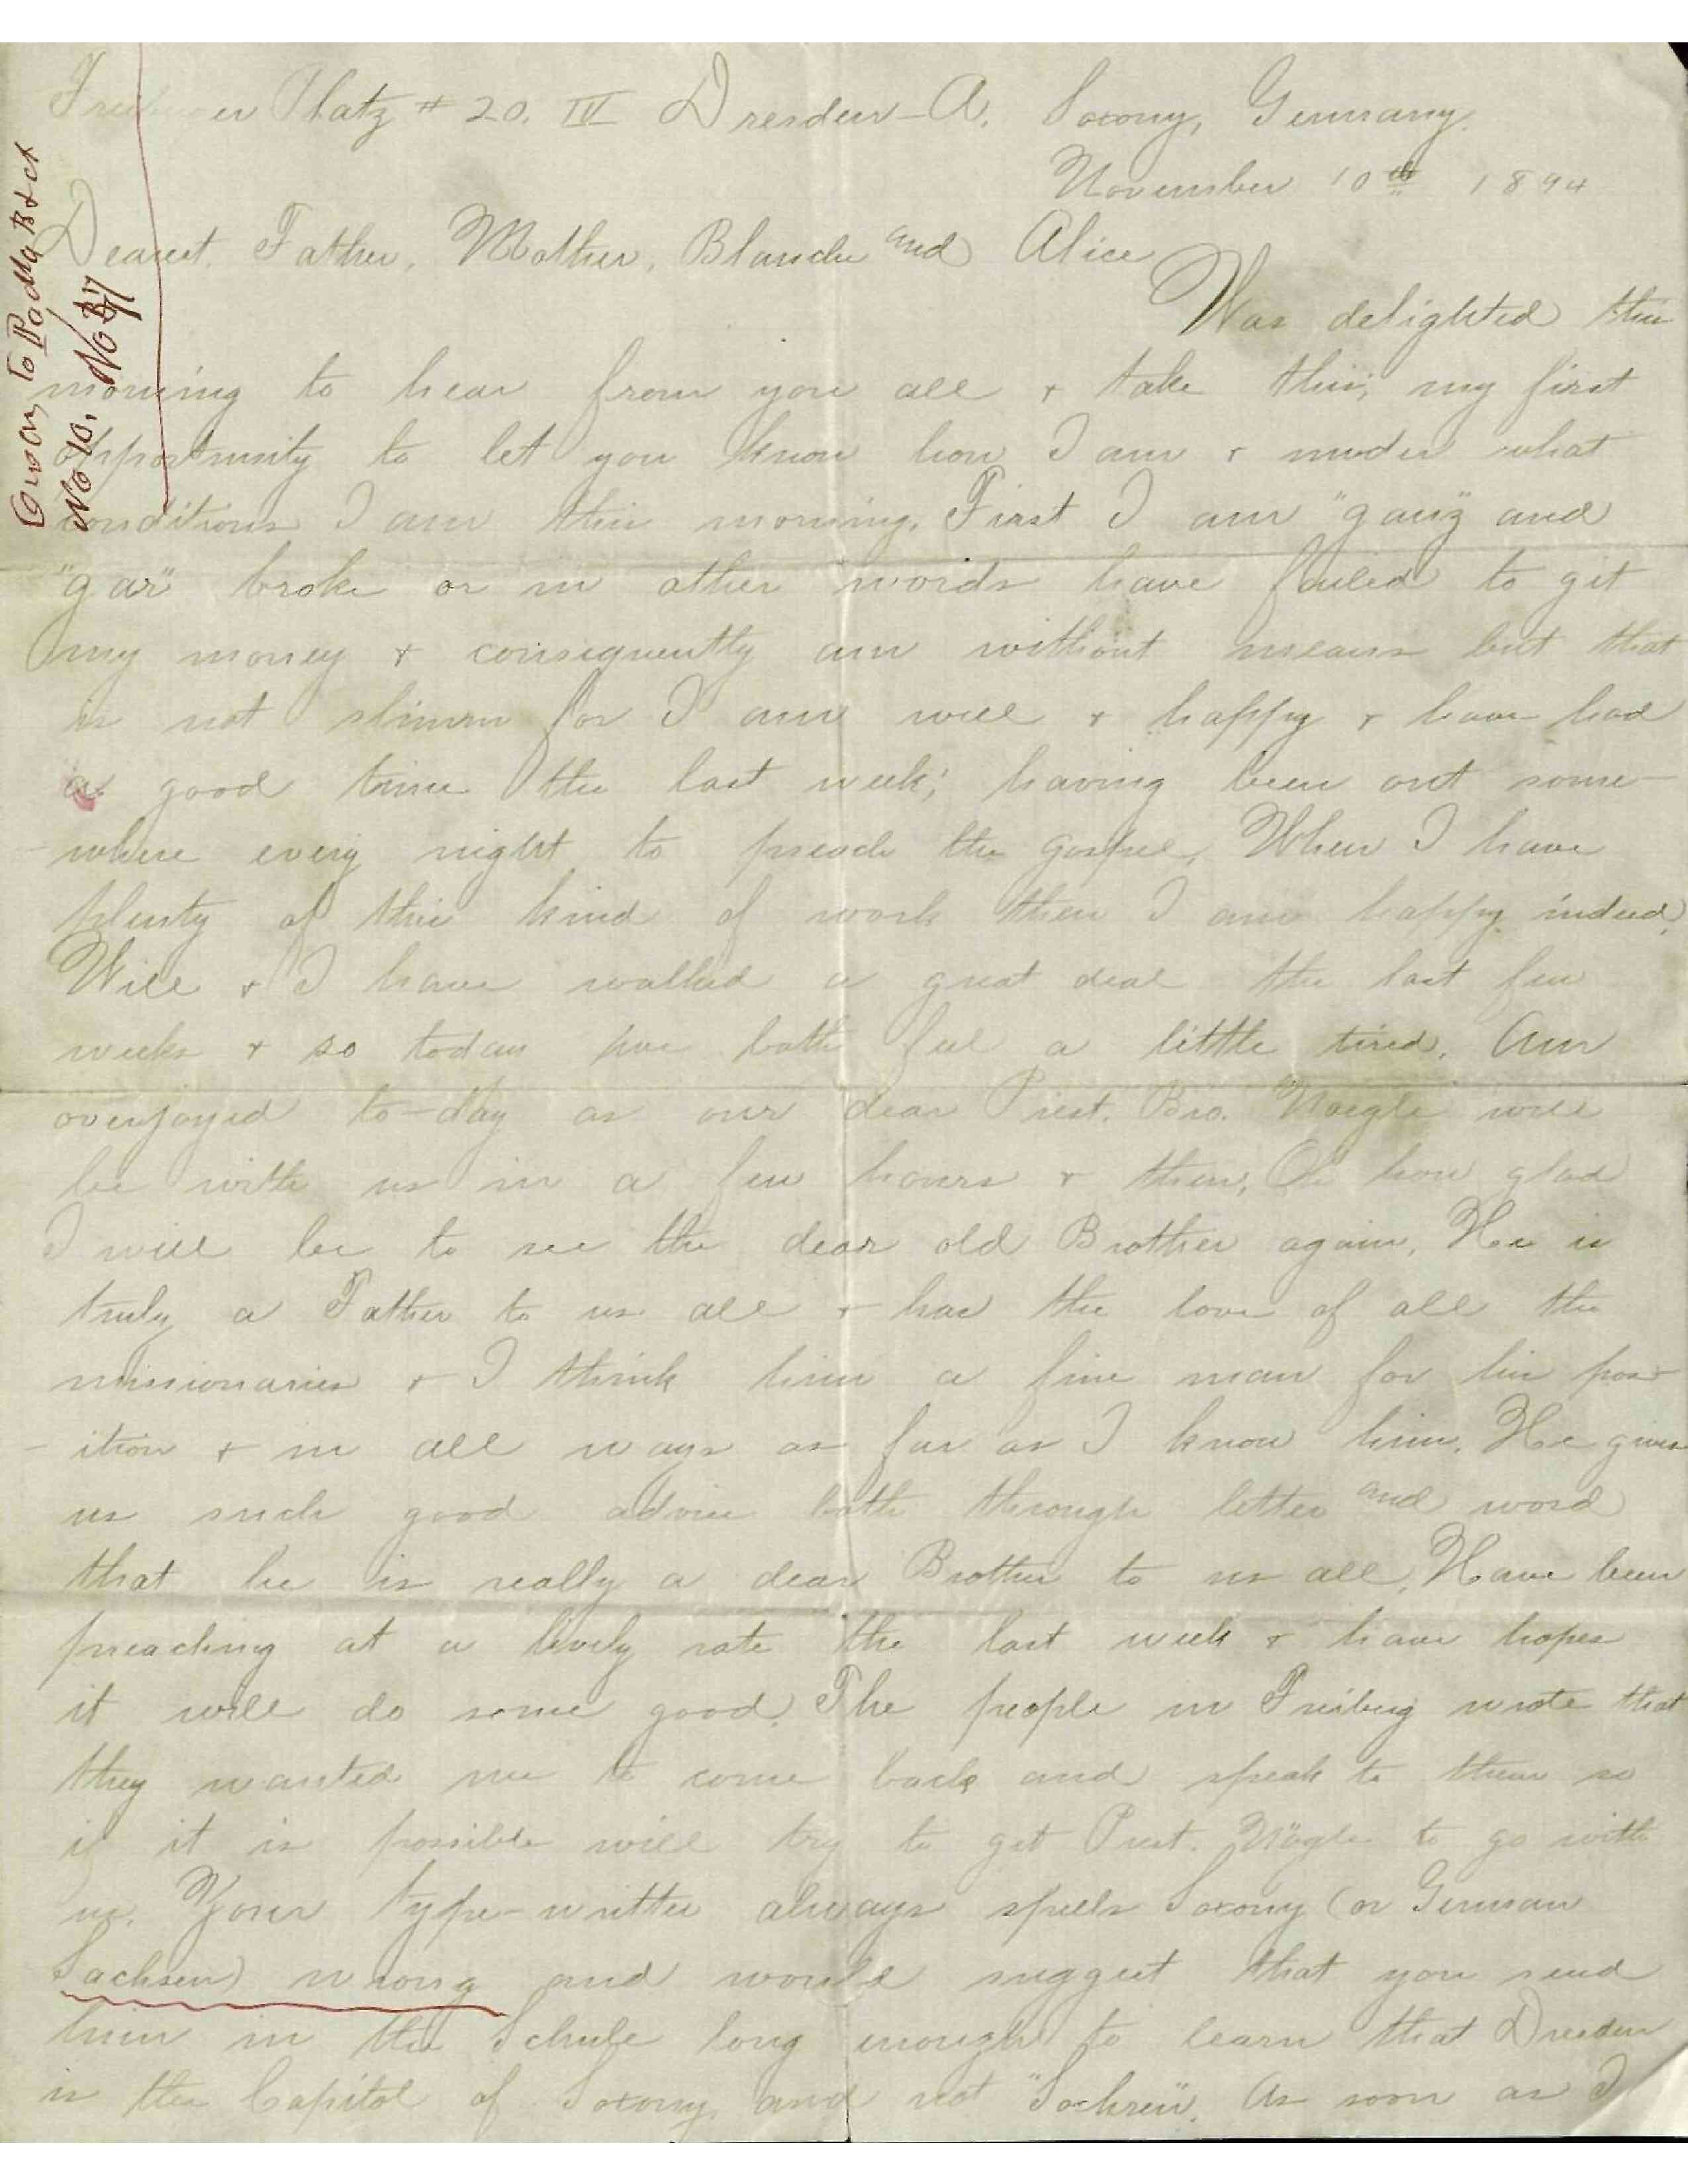 Platz # 20. IV Dresden-A. Saxony, Germany.
November 10th 1894
Dearest Father, Mother, Blanche and Alice
Was delighted this
morning to hear from you all & take this, my first
opportunity to let you know how I am & under what
conditions I am this morning. First I am "ganz" and
"gar" broke or in other words have failed to get
my money & consequently am without means but that
is not slimm for I am well & happy & have had
a good time the last week; having been out some-
-where every night to preach the gospel. When I have
plenty of this kind of work then I am happy indeed.
Will & I have walked a great deal the last few
weeks & so today we both feel a little tired. Am
overjoyed to-day as our dear Prest. Bro. Naegle will
be with us in a few hours & then, Oh how glad
I will be to see the dear old Brother again. He is
truly a Father to us all & has the love of all the
missionaries & I think him a fine man for his pos-
-ition & in all ways as far as I know him. He gives
us such good advice both through letter and word
that he is really a dear Brother to us all. Have been
preaching at a lively rate the last week & have hopes
it will do some good. The people in Freiberg wrote that
they wanted me to come back and speak to them so
if it is possible will try to get Prest. Nägle to go with
me. Your type-writter always spells Saxony (or German
Sachsen) wrong and would suggest that you send
him in the Schule long enough to learn that Dresden
is the Capitol of Saxony and not "Sachsen". As soon as I
No 10. No